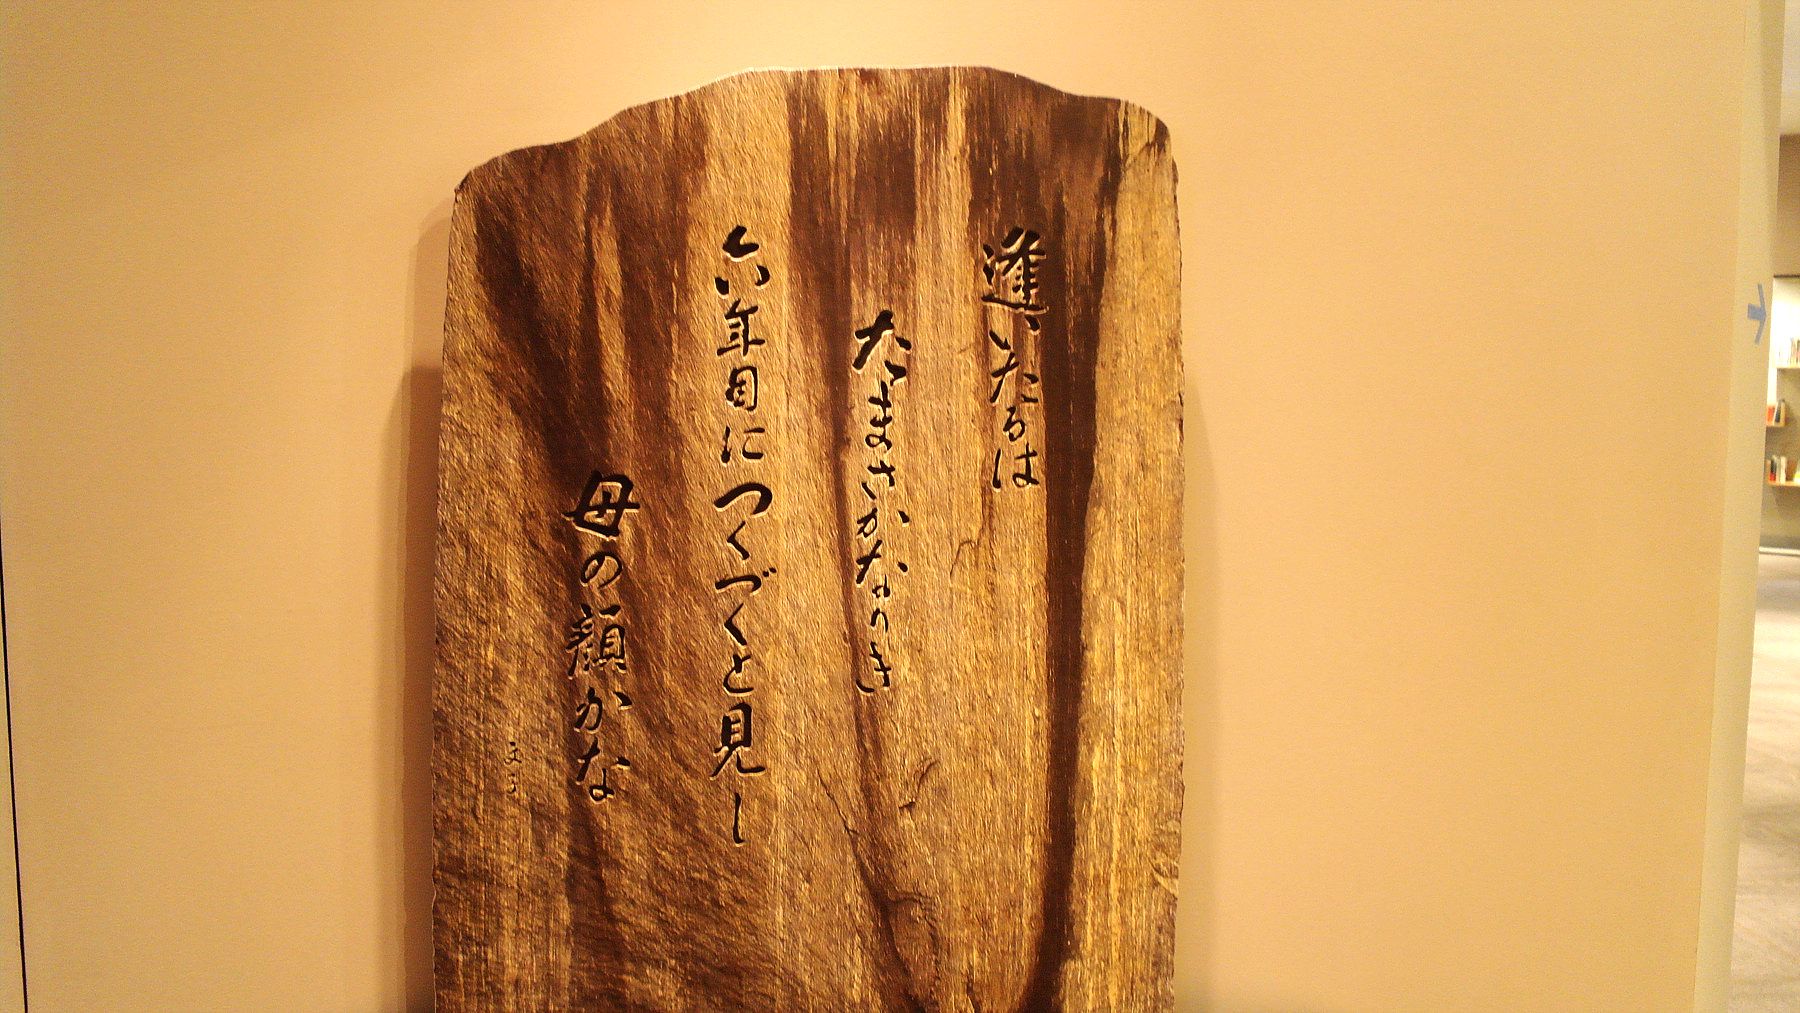 逢いたるは
たまさかなりき
六年目につくづくと見し
母の顔かな